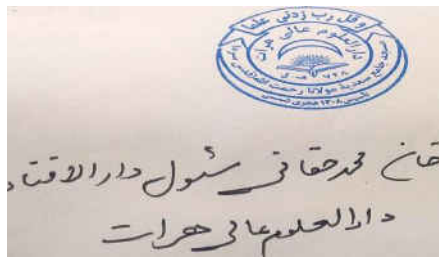 وقل رب زدنی علما
دارالعلوم عالی هرات
خان محمد حقانی مسئول دارالافتاء
دارالعلوم عالی هرات